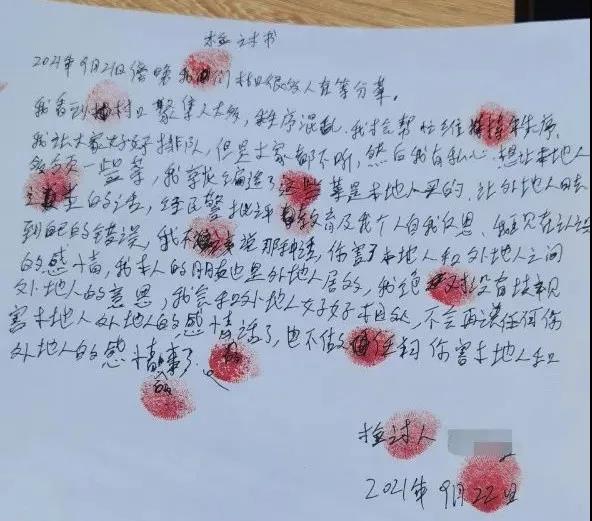 检讨书
2021年9月21日傍晚我们村口很多人在等分菜。
我看到村口聚集人太多,秩序混乱,我才会帮忙维持秩序,
我让大家好好排队,但是大家都不听,然后我有私心,想让本地人
多分一些菜,我就编造了这些菜是本地人买的,让外地人回去
的话,经民警批评教育及我个人自我反思,我现在认识
到自己的错误,我不该说那种话,伤害了本地人和外地人之间
的感情,我本人的朋友也是外地人居多,我绝对没有歧视
外地人的意思,我会和外地人好好相处,不会再说任何伤
害本地人外地人的感情话了,也不做任何伤害本地人和
外地人的感情事了。
检讨人
2021年9月22日